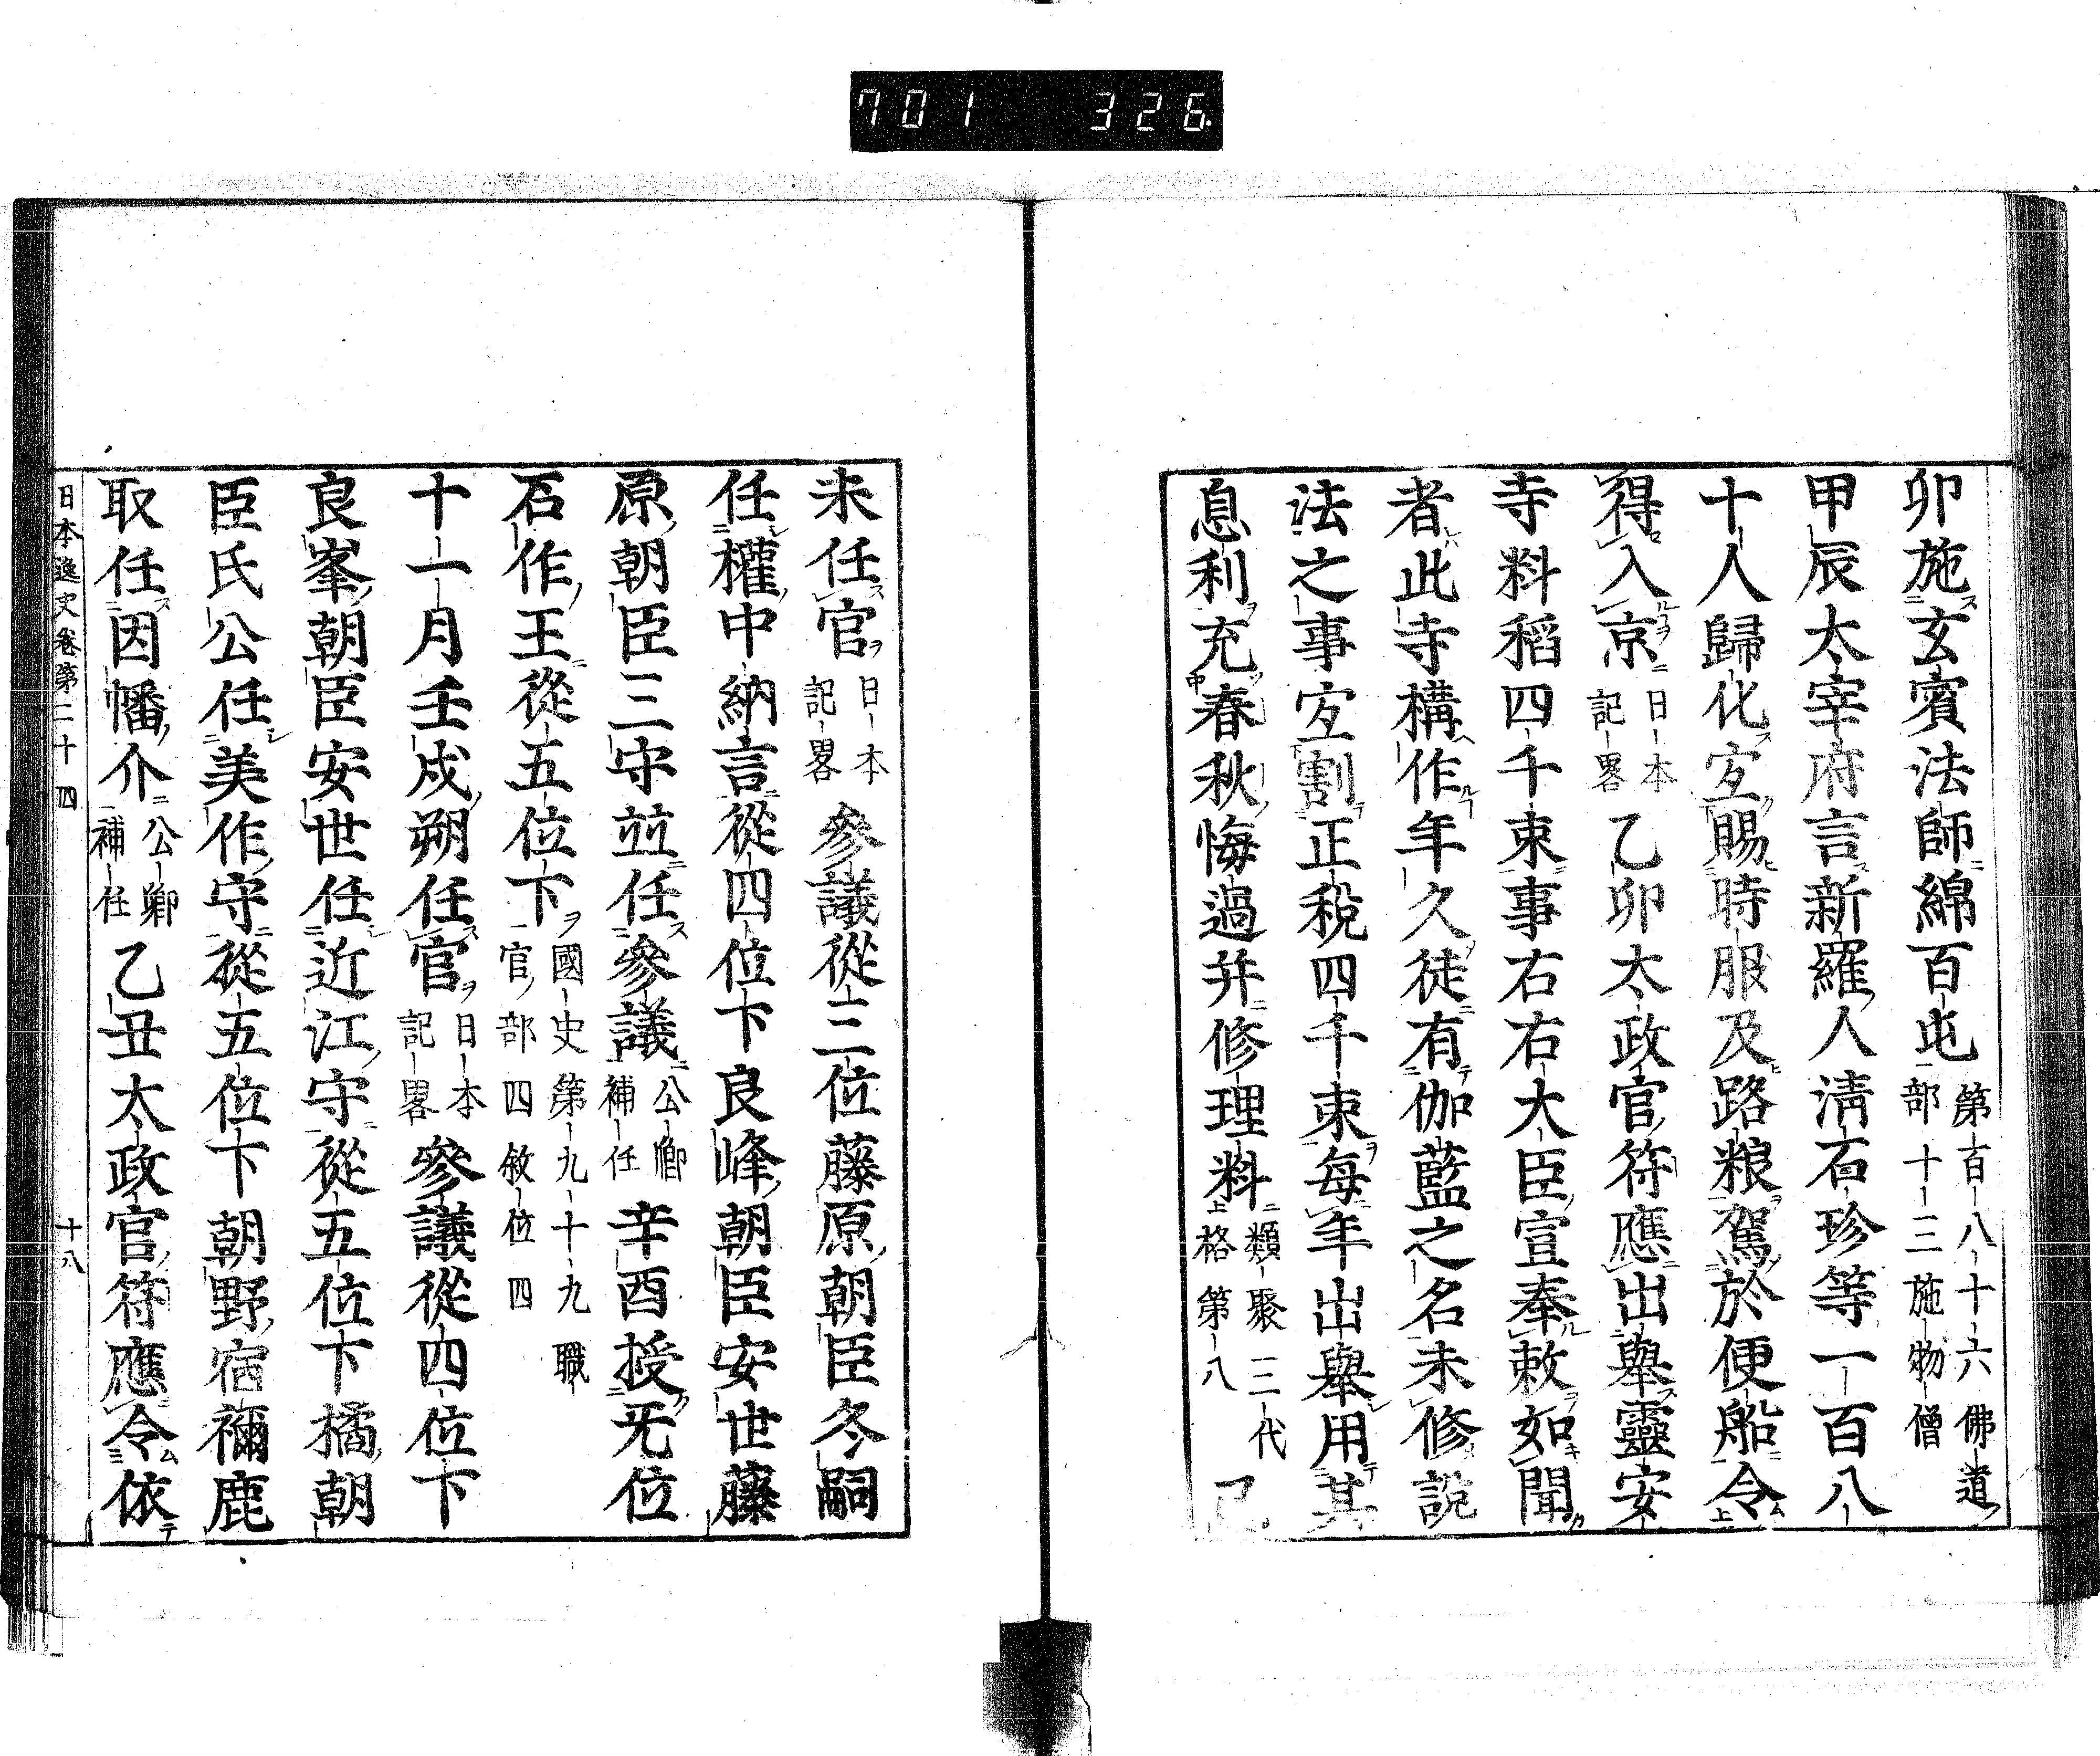 701 326
卯施玄賓法師綿百屯第百八十六佛道部十三施物僧
甲辰太宰府言新羅人清石珍等一百八
十人歸化宜賜時服及路粮駕於便船令
得入京日本記畧乙卯太政官符應出舉靈安
寺料稻四千束事右右大臣宣奉敕如聞
者此寺構作年久徒有伽藍之名未修説
法之事宜割正税四千束每年出舉用其
息利充春秋悔過并修理料類聚三代格第八
未任官日本記畧參議從三位藤原朝臣冬嗣
任權中納言從四位下良峰朝臣安世藤
原朝臣三守並任參議公卿補任辛酉授无位
石作王從五位下國史第九十九職官部四敘位四
十一月壬戌朔任官日本記畧參議從四位下
良峯朝臣安世任近江守從五位下橘朝
臣氏公任美作守從五位下朝野宿禰鹿
取任因幡介公卿補任乙丑太政官符應令依
日本逸史卷第二十四 十八